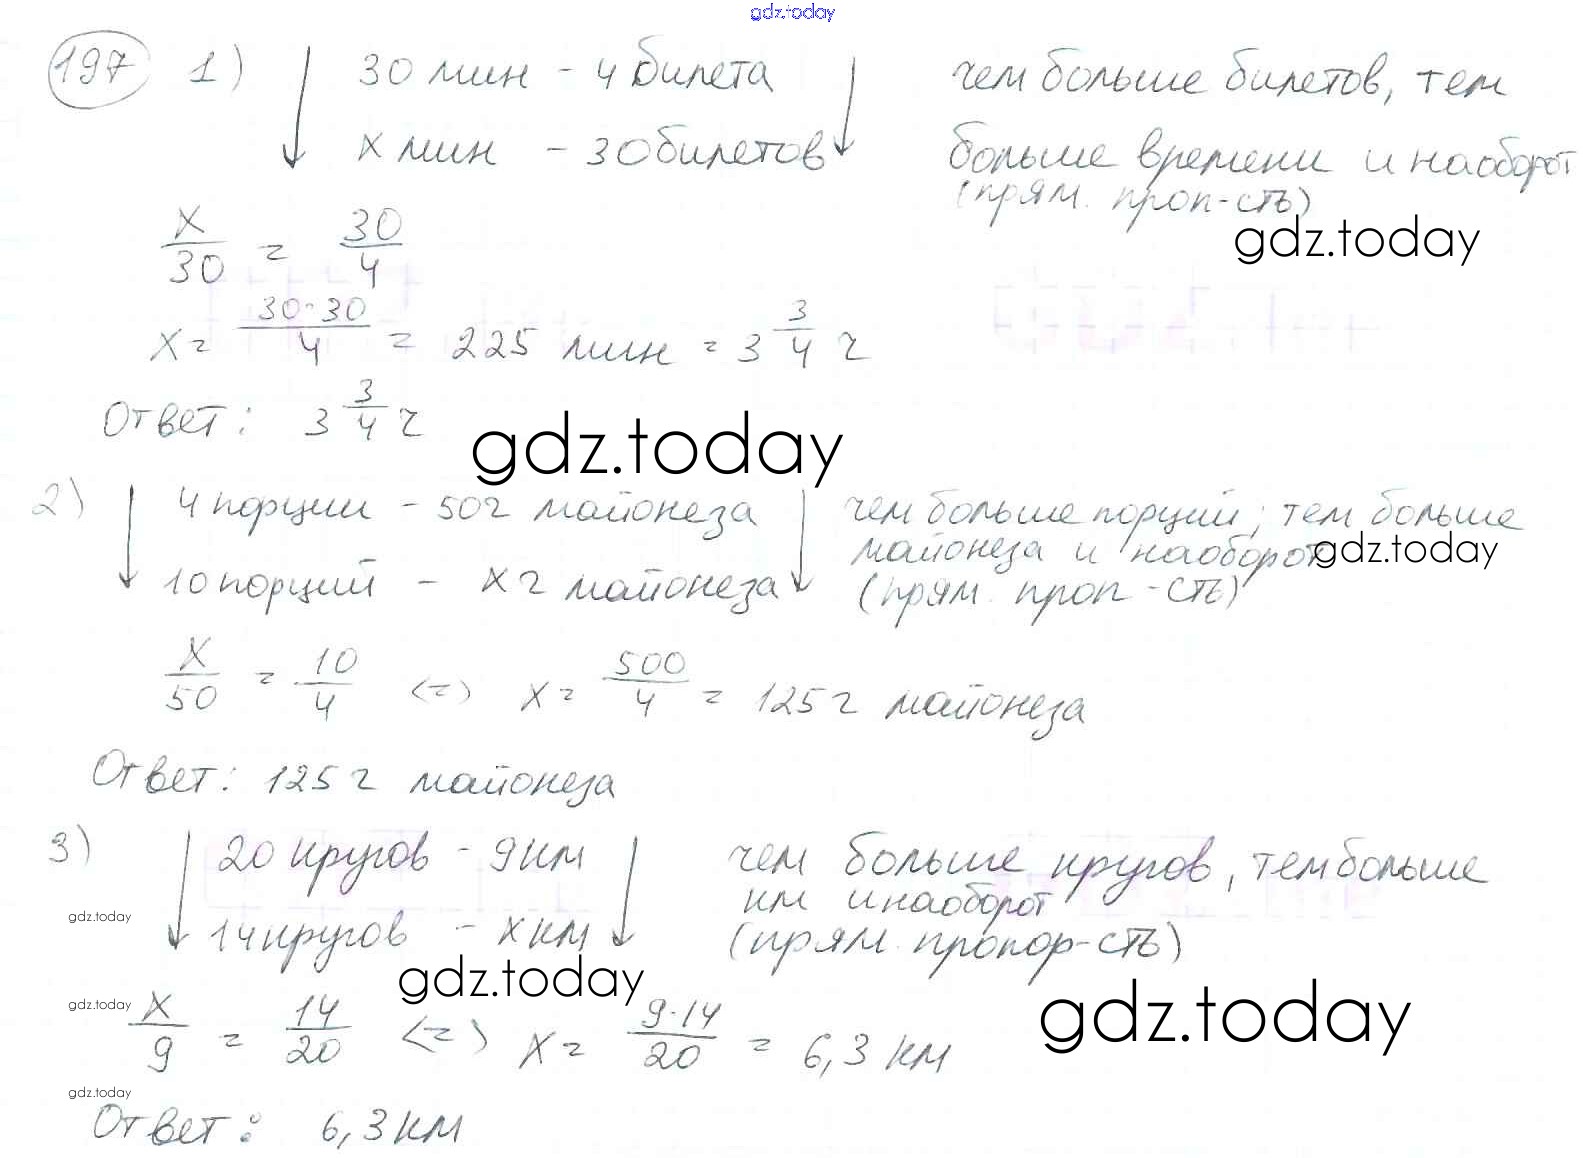 gdz.today
197 1) 30 мин - 4 билета чем больше билетов, тем
x мин - 30 билетов больше времени и наоборот
(прям. проп-сть)
x/30 = 30/4
gdz.today
x = 30·30/4 = 225 мин = 3 3/4 ч
Ответ: 3 3/4 ч
gdz.today
2) 4 порции - 50 г майонеза чем больше порций, тем больше
майонеза и наоборот
gdz.today
10 порций - x г майонеза (прям. проп-сть)
x/50 = 10/4 <=> x = 500/4 = 125 г майонеза
Ответ: 125 г майонеза
3) 20 кругов - 9 км чем больше кругов, тем больше
км и наоборот
gdz.today
14 кругов - x км (прям. пропор-сть)
gdz.today
gdz.today
gdz.today
x/9 = 14/20 <=> x = 9·14/20 = 6,3 км
gdz.today
Ответ: 6,3 км